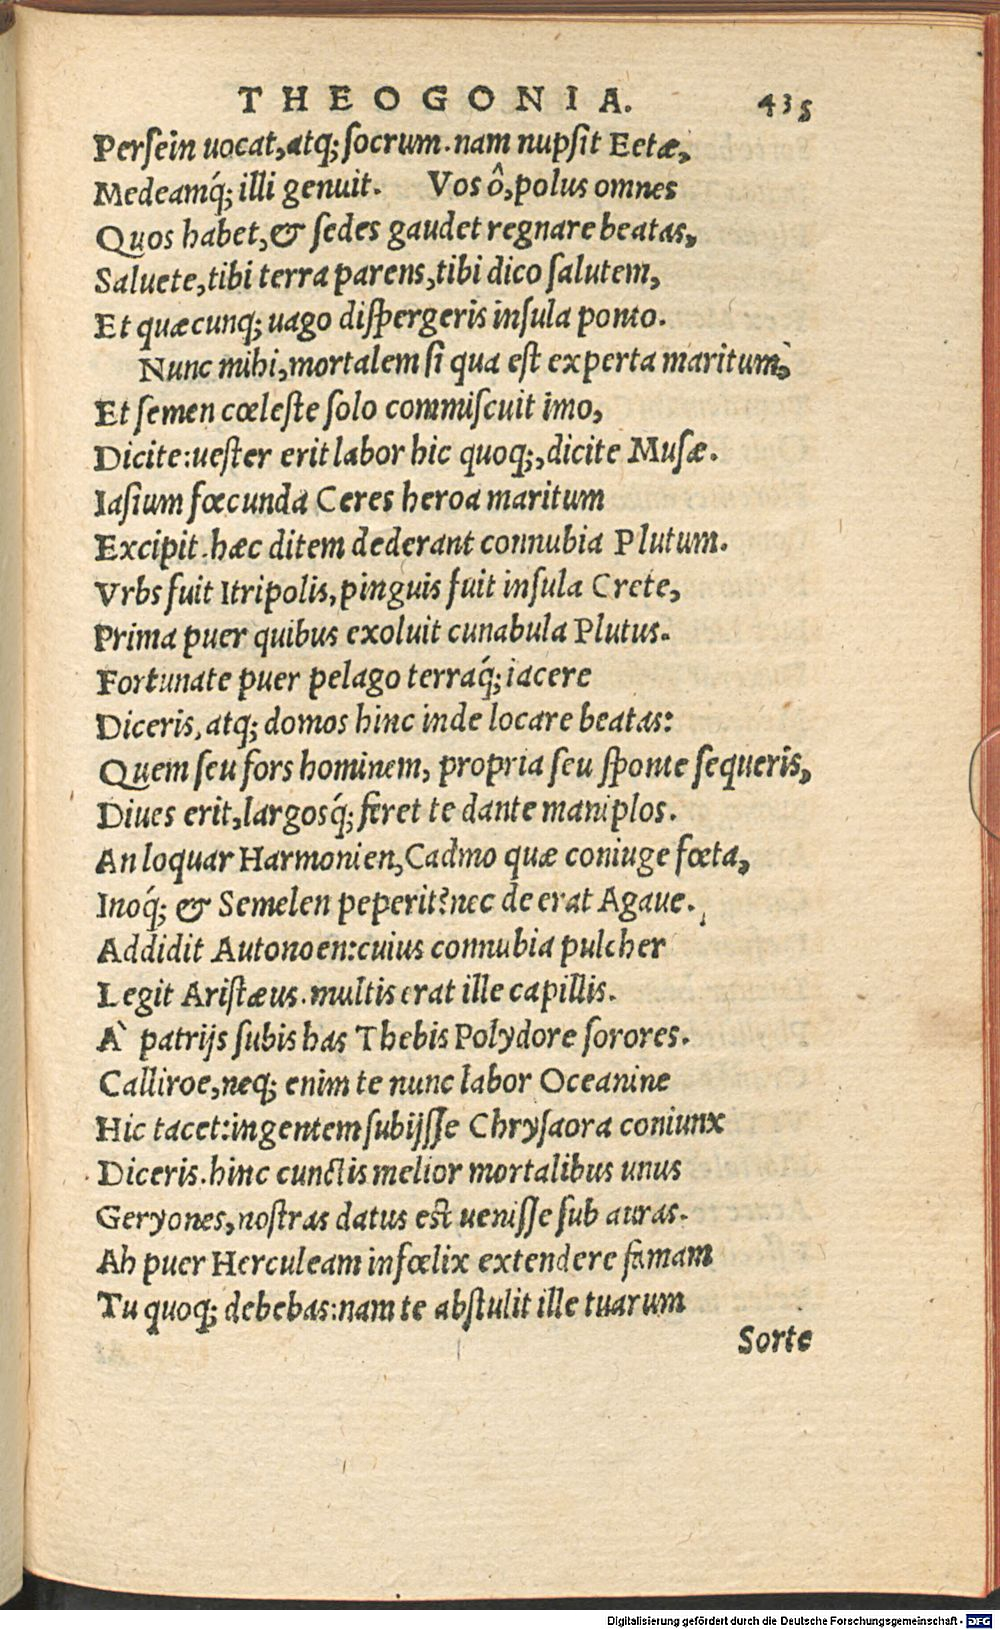 THEOGONIA. 435
Persein uocat, atq; socrum. nam nupsit Eetæ,
Medeamq́; illi genuit. Vos ô, polus omnes
Quos habet, & sedes gaudet regnare beatas,
Saluete, tibi terra parens, tibi dico salutem,
Et quæcunq; uago dispergeris insula ponto.
Nunc mihi, mortalem si qua est experta maritum,
Et semen cœleste solo commiscuit imo,
Dicite: uester erit labor hic quoq;, dicite Musæ.
Iasium fœcunda Ceres heroa maritum
Excipit. hæc ditem dederant connubia Plutum.
Vrbs fuit Itripolis, pinguis fuit insula Crete,
Prima puer quibus exoluit cunabula Plutus.
Fortunate puer pelago terraq́; iacere
Diceris, atq; domos hinc inde locare beatas:
Quem seu fors hominem, propria seu sponte sequeris,
Diues erit, largosq́; feret te dante maniplos.
An loquar Harmonien, Cadmo quæ coniuge fœta,
Inoq́; & Semelen peperit? nec de erat Agaue.
Addidit Autonoen: cuius connubia pulcher
Legit Aristæus. multis erat ille capillis.
À patrijs subis has Thebis Polydore sorores.
Calliroe, neq; enim te nunc labor Oceanine
Hic tacet: ingentem subijsse Chrysaora coniunx
Diceris. hinc cunctis melior mortalibus unus
Geryones, nostras datus est uenisse sub auras.
Ah puer Herculeam infœlix extendere famam
Tu quoq; debebas: nam te abstulit ille tuarum
Sorte
Digitalisierung gefördert durch die Deutsche Forschungsgemeinschaft - DFG